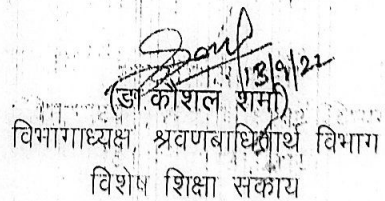 13/9/22
(डा कौशल शर्मा)
विभागाध्यक्ष, श्रवणबाधितार्थ विभाग
विशेष शिक्षा संकाय